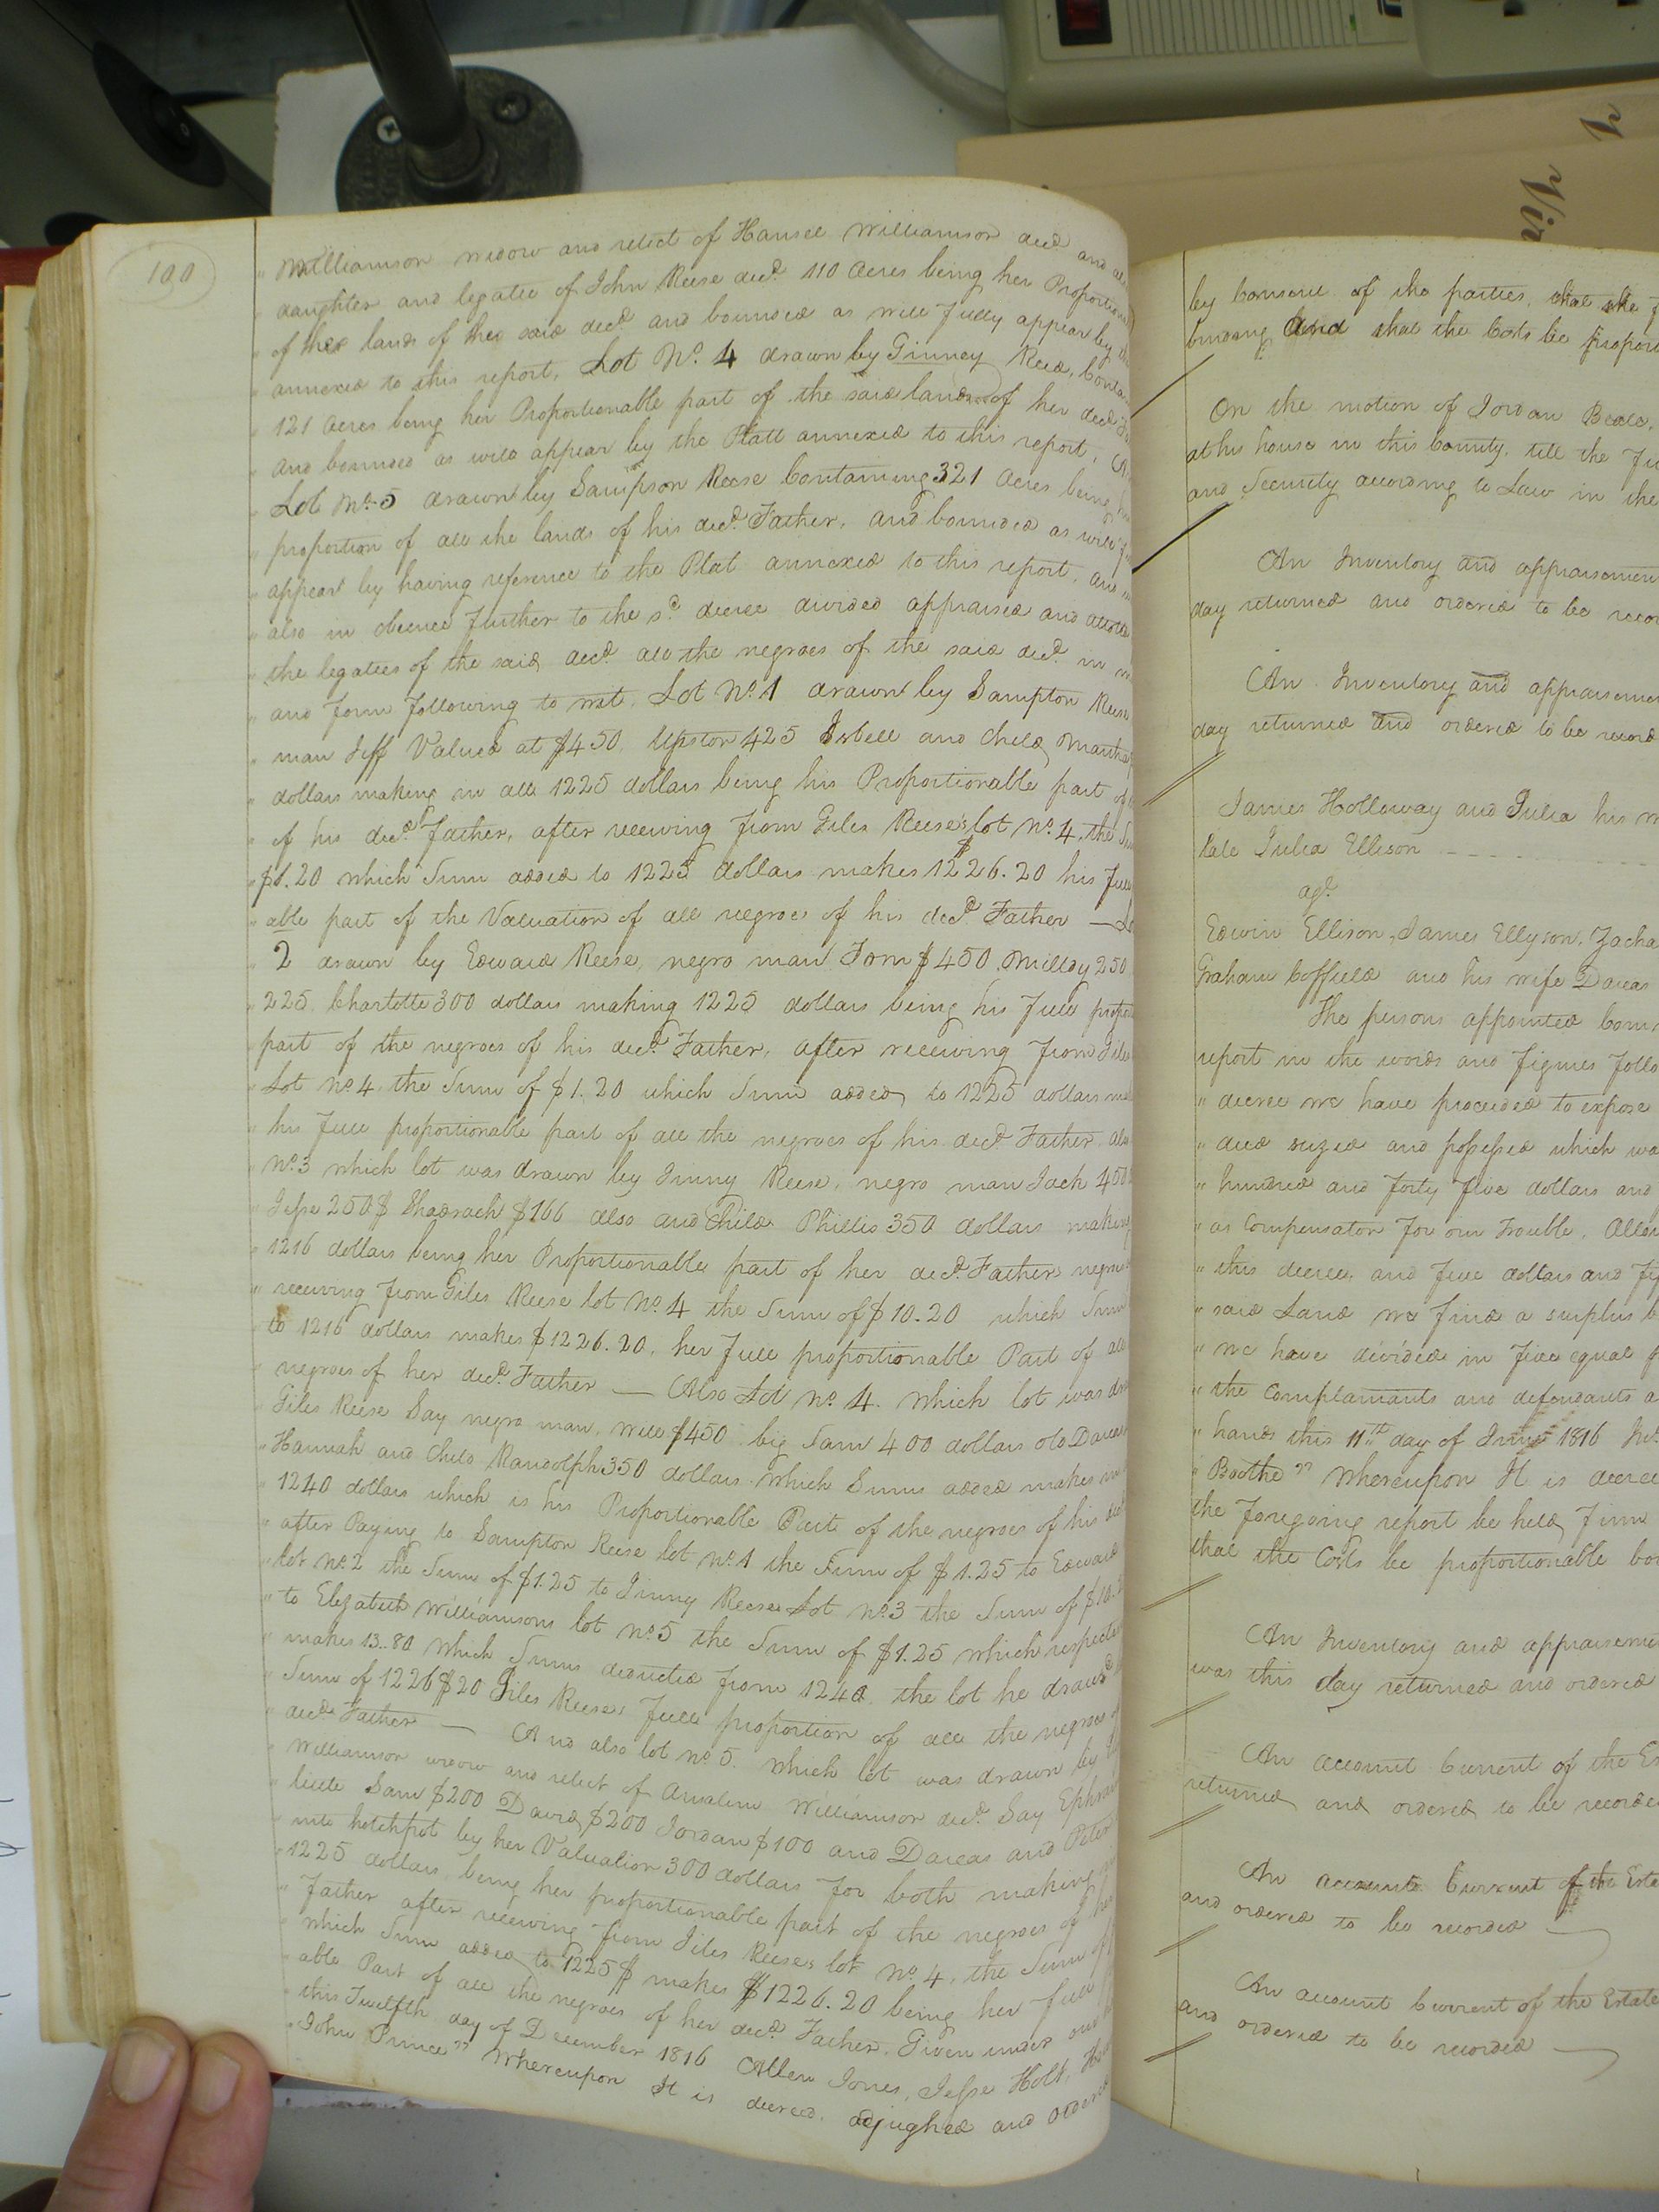 100
" Williamson widow and relict of Hansel Williamson decd and
" daughter and legatee of John Reese decd 110 Acres being her Proportion
" of her lands of her said decd and bounded as will fully appear by
" annexed to this report, Lot No. 4 drawn by Ginney Reese,
" 121 Acres being her Proportionable part of the said lands of her decd
" and bounded as will appear by the Platt annexed to this report,
" Lot No. 5 drawn by Sampson Reese Containing 321 Acres being
" proportion of all the lands of his decd Father, and bounded as will
" appear by having reference to the Plat annexed to this report, and
" also in obience further to the sd decree divided appraised and
" the legatees of the said decd all the negroes of the said decd in
" and form following to wit, Lot No. 1 drawn by Sampton Reese
" man Jeff Valued at $450, 425 Isbell and Child
" dollars making in all 1225 dollars being his Proportionable part of
" of his decd Father, after receiving from Giles Reese's lot No. 4, the
" $1.20 which Sum added to 1225 dollars makes $1226.20 his
" able part of the Valuation of all negroes of his decd Father —
" 2 drawn by Edward Reese, negro man Tom $450, Milley 250
" 225, Charlotte 300 dollars making 1225 dollars being his full
part of the negroes of his decd Father, after receiving from
" Lot No. 4, the Sum of $1.20 which Sum added to 1225 dollars
" his full proportionable part of all the negroes of his decd Father,
" No. 3 which lot was drawn by Jinny Reese, negro man Jack 450
" Jesse 250$ Shadrach $166 also and Child Phillis 350 dollars making
" 1216 dollars being her Proportionable part of her decd Fathers
" receiving from Giles Reese lot No. 4 the Sum of $10.20 which Sum
" to 1216 dollars makes $1226.20, her full proportionable Part of all
" negroes of her decd Father — Also Lot No. 4. which lot was
" Giles Reese Say negro man, Will $450 big Sam 400 dollars old
" Hannah and Child Randolph 350 dollars which Sums added makes
" 1240 dollars which is his Proportionable Part of the negroes of his
" after Paying to Sampton Reese lot No. 1 the Sum of $1.25 to Edward
" lot No. 2 the Sum of $1.25 to Jinny Reeses Lot No. 3 the Sum of
" to Elizabeth Williamsons lot No. 5 the Sum of $1.25 which
" makes 13..80 which Sums deducted from 1240, the lot he
" Sum of 1226$20 Giles Reeses full proportion of all the negroes
" decd Father — And also lot No. 5. which lot was drawn by
" Williamson widow and relict of Williamson decd Say
" little Sam $200 David $200 Jordan $100 and Darcas and Peter
" into hotchpot by her Valuation 300 dollars for both making
" 1225 dollars being her proportionable part of the negroes of her
" father after receiving from Giles Reeses lot No. 4, the Sum of
" which Sum added to 1225$ makes $1226.20 being her full
" able Part of all the negroes of her decd Father. Given under our
" this Twelfth day of December 1816 Allen Jones, Jesse Holt,
" John Prince" Whereupon It is decreed, adjughed and ordered
by Consent of the parties, that the
binding And that the Costs be
On the motion of Jordan Beale,
at his house in this County, till the
and Security according to Law in the
An Inventory and appraisement
day returned and ordered to be
An Inventory and appraisement
day returned and ordered to be record
James Holloway and Julia his
late Julia Ellison
agt.
Edwin Ellison, James Ellyson,
Graham Coffield and his wife Darcas
The persons appointed
report in the words and figures
" decree we have proceeded to expose
" died seized and possessed which
" hundred and forty five dollars and
" as Compensation for our trouble,
" this decree, and five dollars and
" said Land we find a surplus
" we have divided in five equal
" the Complainants and defendants
" hands this 11th day of June 1816
" Boothe" Whereupon It is
the foregoing report be held firm
that the Costs be proportionable
An Inventory and appraisement
was this day returned and ordered
An account Current of the
returned and ordered to be
An account Current of the
and ordered to be recorded
An account Current of the Estate
and ordered to be recorded